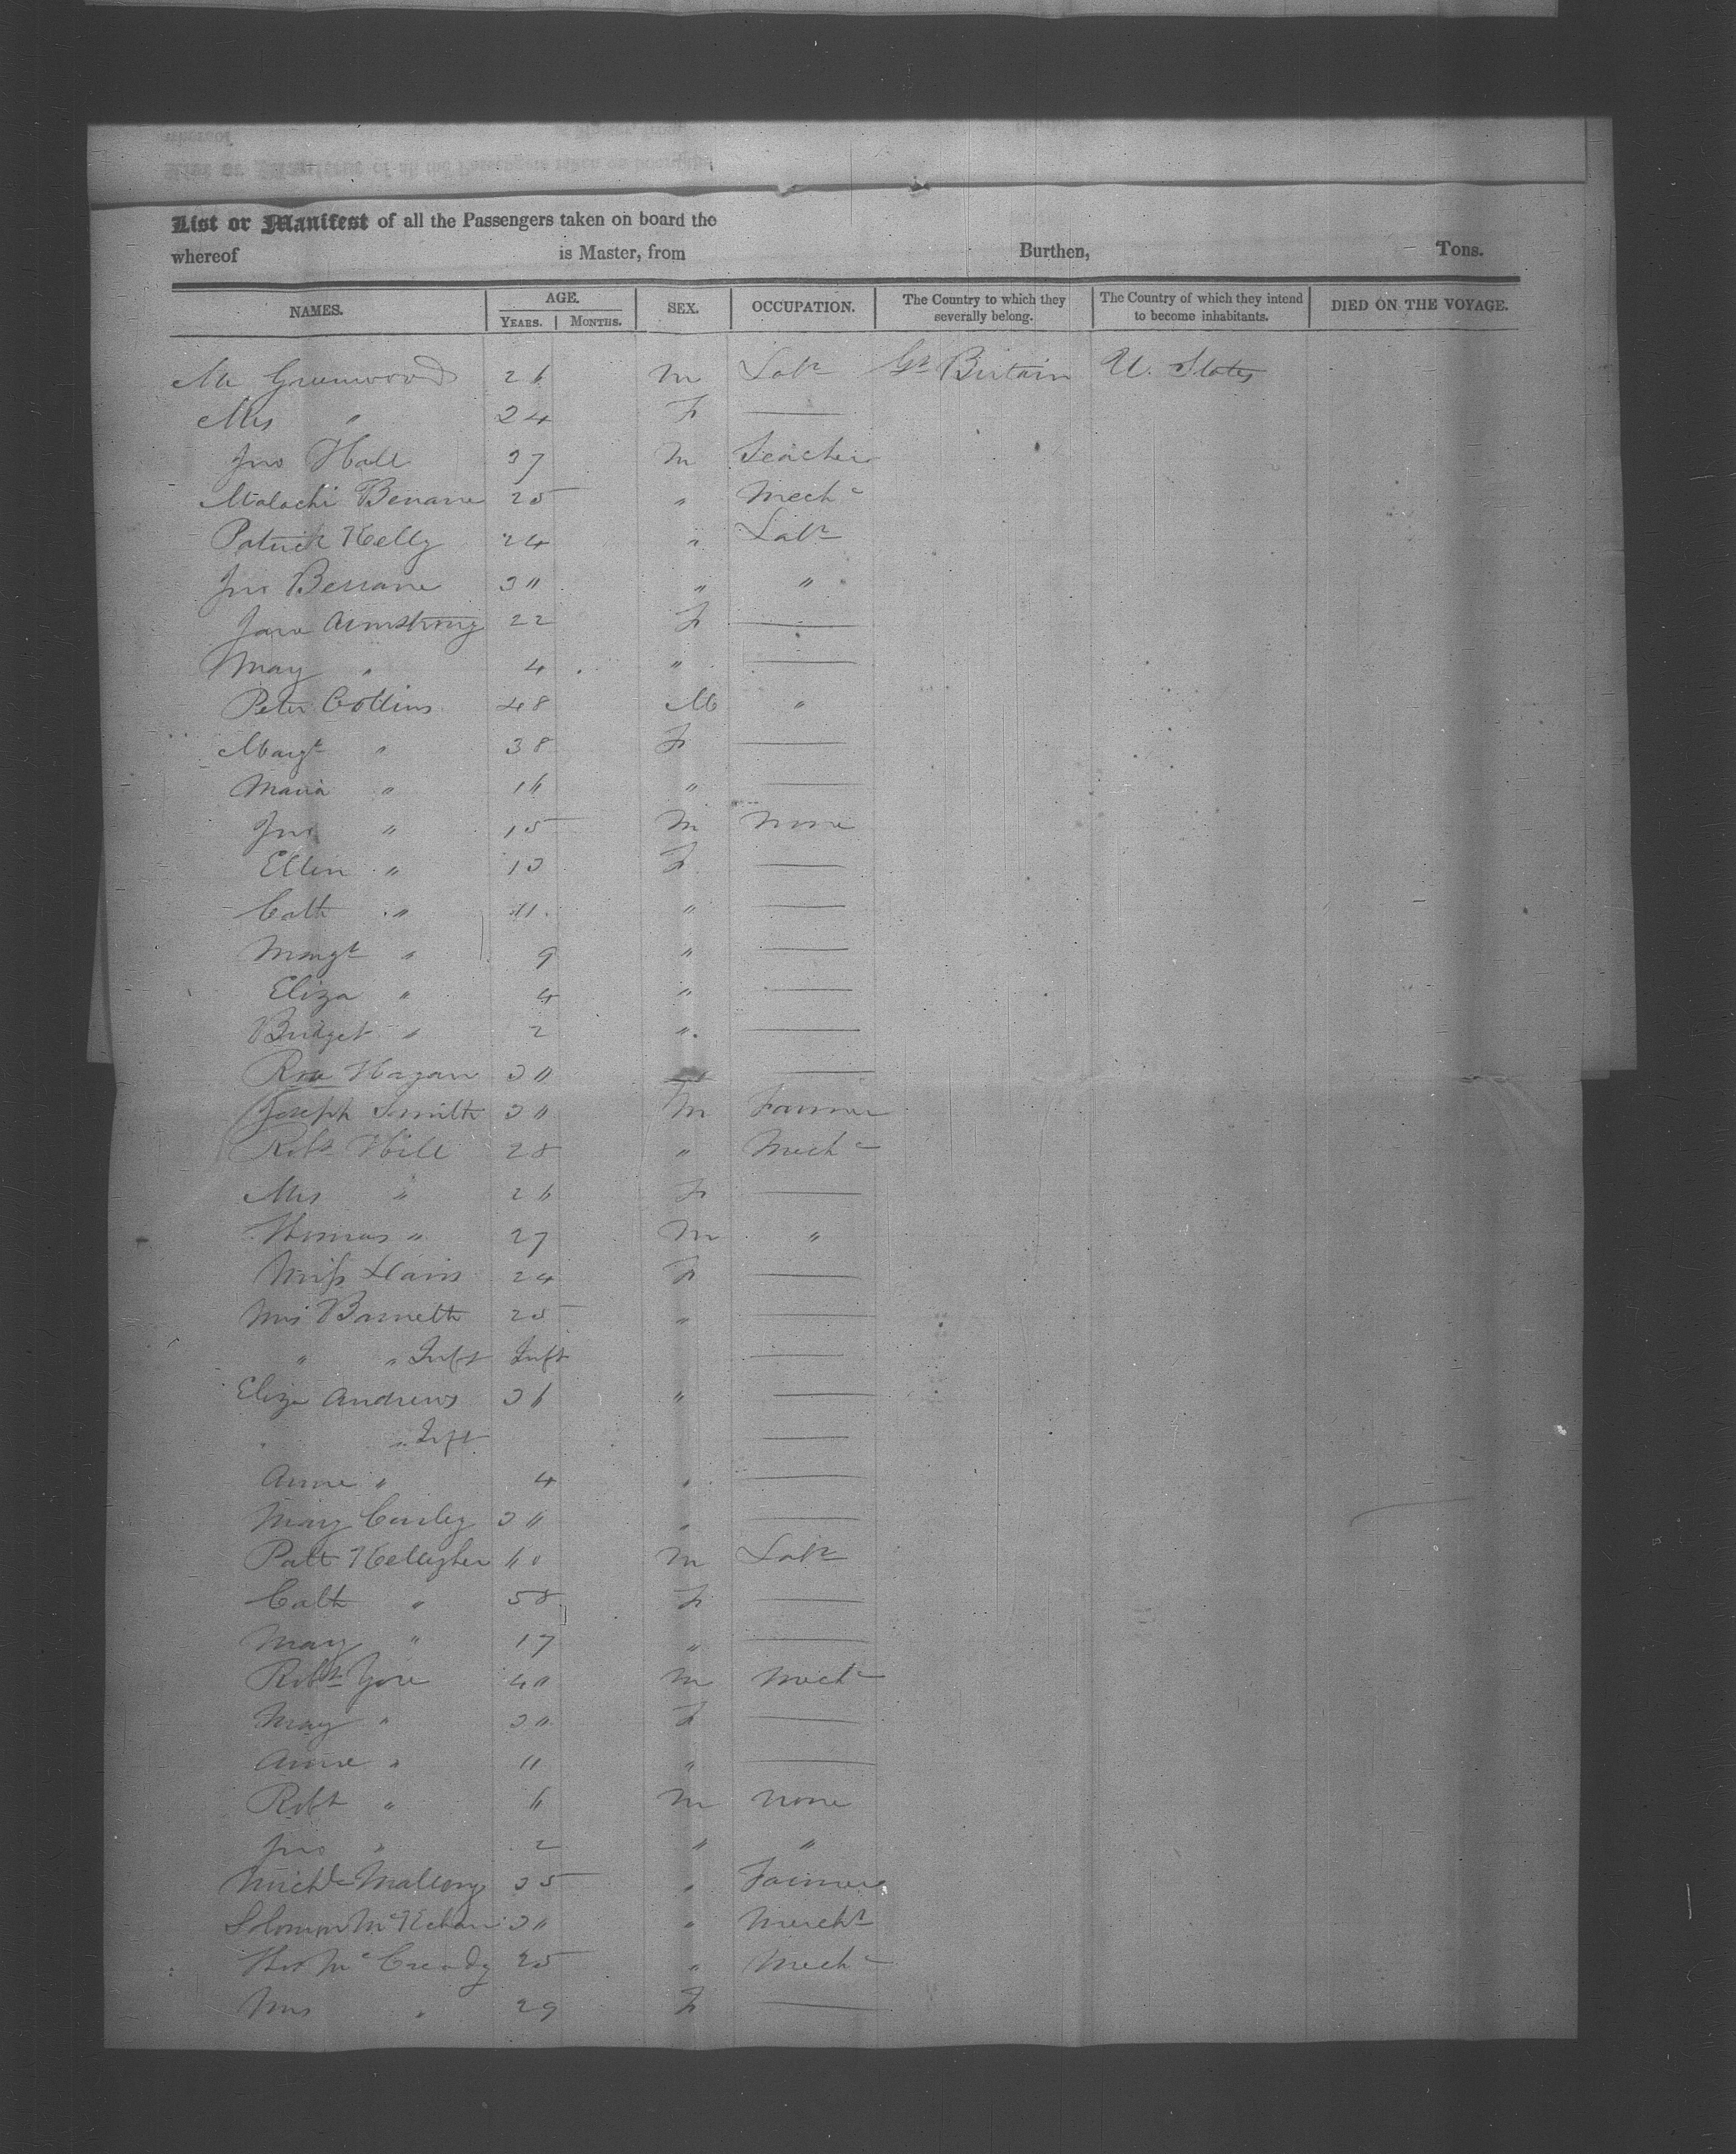 List or Manifest of all the Passengers taken on board the
whereof is Master, from Burthen, Tons.
NAMES. AGE. SEX. OCCUPATION. The Country to which they severally belong. The Country of which they intend to become inhabitants. DIED ON THE VOYAGE.
YEARS. MONTHS.
Mr Greenwood 26 M Labr Gt Britain U. States
Mrs " 24 F —
Jno Hall 37 M Teacher
Malachi 25 " Mechc
Patrick Kelly 24 " Labr
Jno 30 " "
Jane Armstrong 22 F —
Mary " 4 " —
Peter Collins 48 M "
Margt " 38 F —
Maria " 16 " —
Jno " 15 M None
Ellen " 13 F —
Cath " 11 " —
Margt " 9 " —
Eliza " 4 " —
Bridget " 2 " —
Rose Hagan 30 —
Joseph Smith 30 M Farmer
Robt Hill 28 " Mechc
Mrs " 26 F —
Thomas " 27 M "
Miss 24 F —
Mrs Barnett 25 " —
" " Inft Inft —
Eliza Andrews 36 " —
" " Inft —
Anne " 4 " —
Mary 30 " —
Patt 60 M Labr
Cath " 58 F —
Mary " 17 " —
Robt Gore 40 M Mechc
Mary " 30 F —
Anne " 11 " —
Robt " 6 M None
Jno " 2 " "
Michl Mallony 35 " Farmer
Solomon 30 " Mercht
Thos McCready 25 " Mechc
Mrs " 29 F —